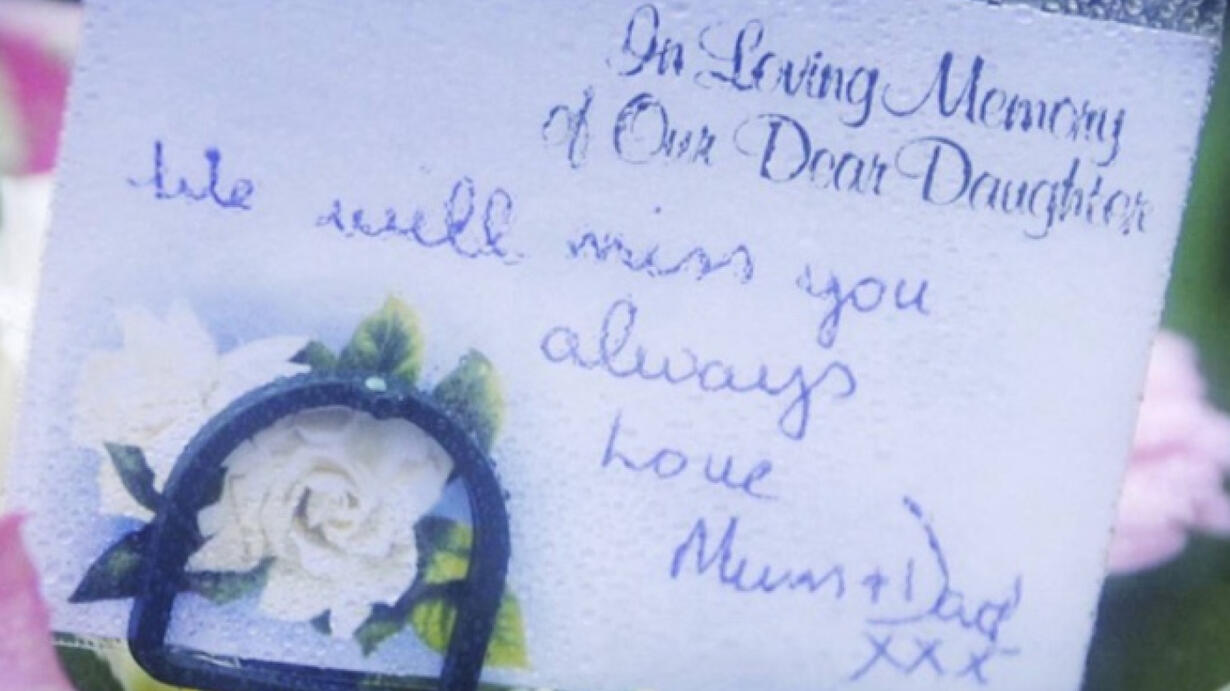 In Loving Memory
of Our Dear Daughter
We will miss you
always
Love
Mum + Dad
xxx